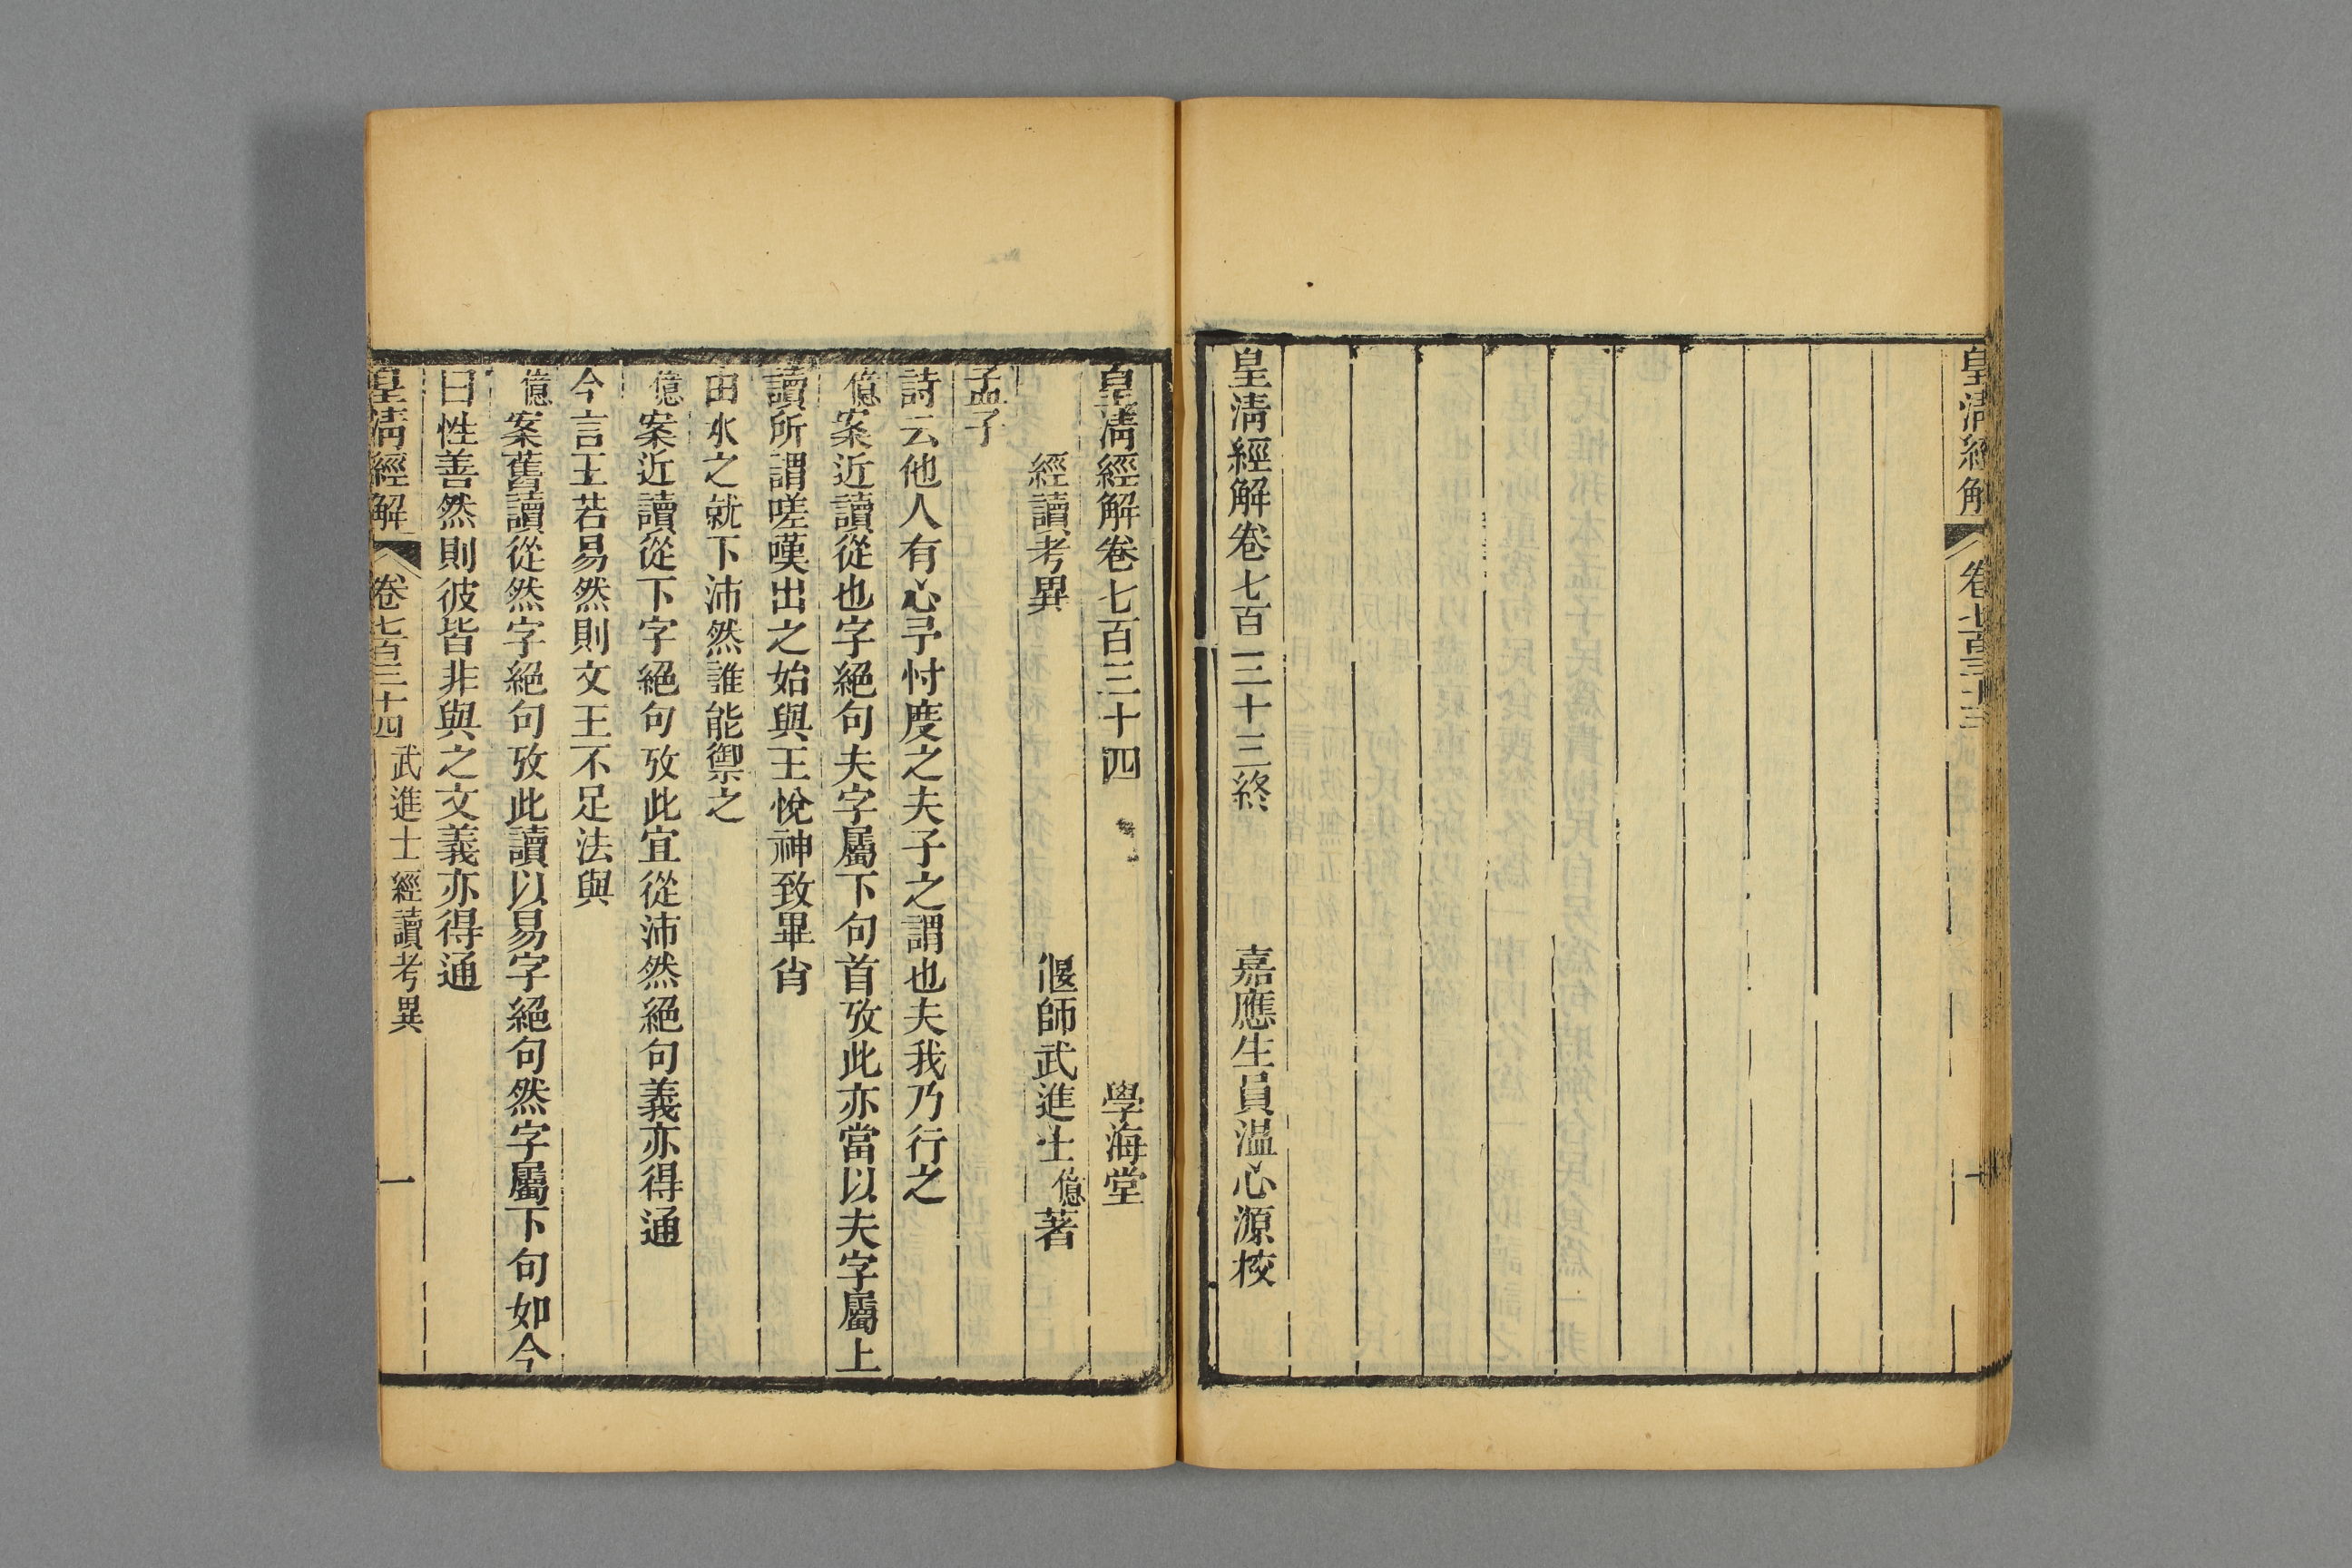 皇清經解
卷七百三十三
皇清經解卷七百三十三終
嘉應生員溫心源校
皇清經解卷七百三十四
學海堂
經讀考異
偃師武進士億著
孟子
詩云他人有心予忖度之夫子之謂也夫我乃行之
億案近讀從也字絕句夫字屬下句首攷此亦當以夫字屬上
讀所謂嗟嘆出之始與王悅神致畢肖
由水之就下沛然誰能禦之
億案近讀從下字絕句攷此宜從沛然絕句義亦得通
今言王若易然則文王不足法與
億案舊讀從然字絕句攷此讀以易字絕句然字屬下句如今
曰性善然則彼皆非與之文義亦得通
皇清經解
卷七百三十四
武進士經讀考異
一